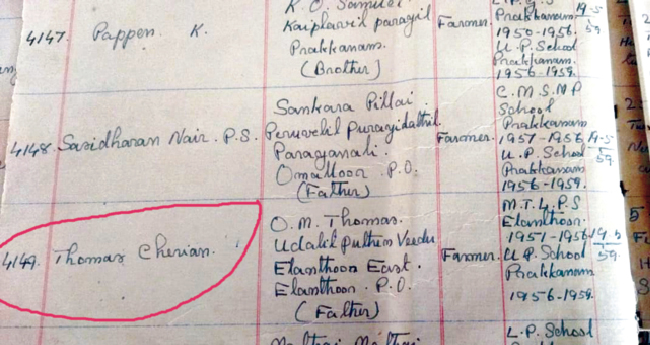 4147. Pappen. K.
K. O. Samuel
Kaiplavil parayil
Prakkanam.
(Brother)
Farmer.
Prakkanam
1950-1956
U.P. School
Prakkanam
1956-1959.
19-5
59.
4148. Sasidharan Nair. P.S.
Sankara Pillai.
Peruvelil Puragidathil
Paraganali.
Omalloor. P.O.
(Father)
Farmer.
C.M.S.N.P
School
Prakkanam
1957-1956
U.P. School
Prakkanam
1956-1959.
19-5
59.
4149. Thomas Cherian.
O.M. Thomas.
Udalil Puthen Veedu
Elanthoor East.
Elanthoor. P.O.
(Father)
Farmer.
M.T.L.P.S
Elanthoor.
1951-1956
U.P. School
Prakkanam
1956-1959.
19.5
59.
L.P. School